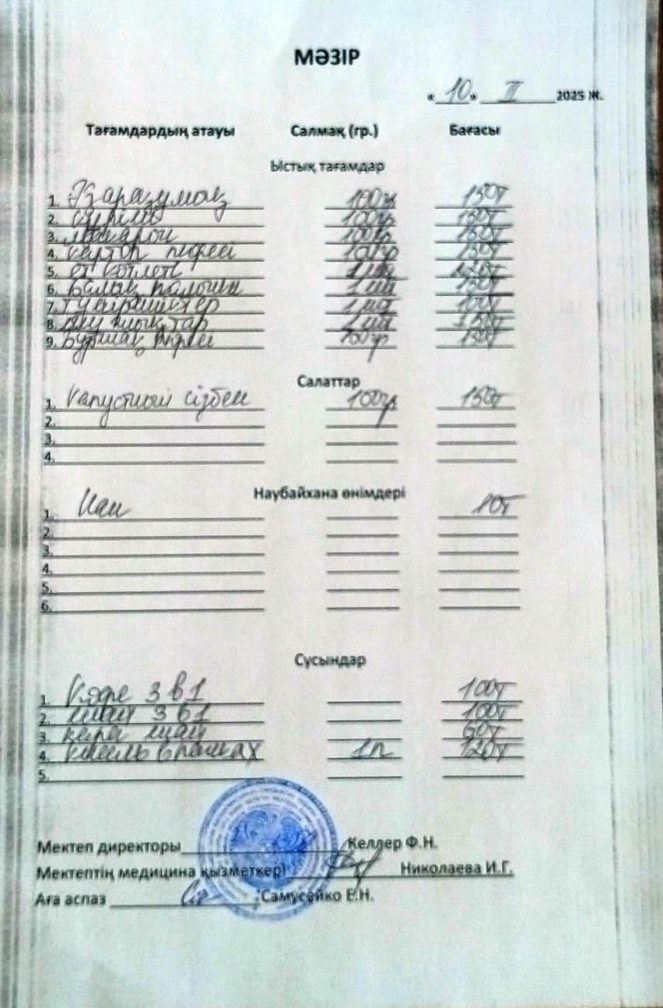 МӘЗІР
«10» II 2025 Ж.
Тағамдардың атауы Салмақ (гр.) Бағасы
Ыстық тағамдар
1. Қарақұмық 100гр 130т
2. күріш 100гр 130т
3. макарон 100гр 130т
4. картоп пюресі 100гр 130т
5. ет котлеті 1 шт 120т
6. Балық 1 шт 130т
7. 1 шт 100т
8. 1 шт
9. Бұршақ пюресі 130т
Салаттар
1. Капустный сәбізбен 100гр 130т
2.
3.
4.
Наубайхана өнімдері
1. Нан 10т
2.
3.
4.
5.
6.
Сусындар
1. Кофе 3 в 1 100т
2. шай 3 в 1 100т
3. қара шай 60т
4. кисель в пачках 1п 120т
5.
Мектеп директоры Келлер Ф.Н.
Мектептің медицина қызметкері Николаева И.Г.
Аға аспаз Самусейко Е.Н.